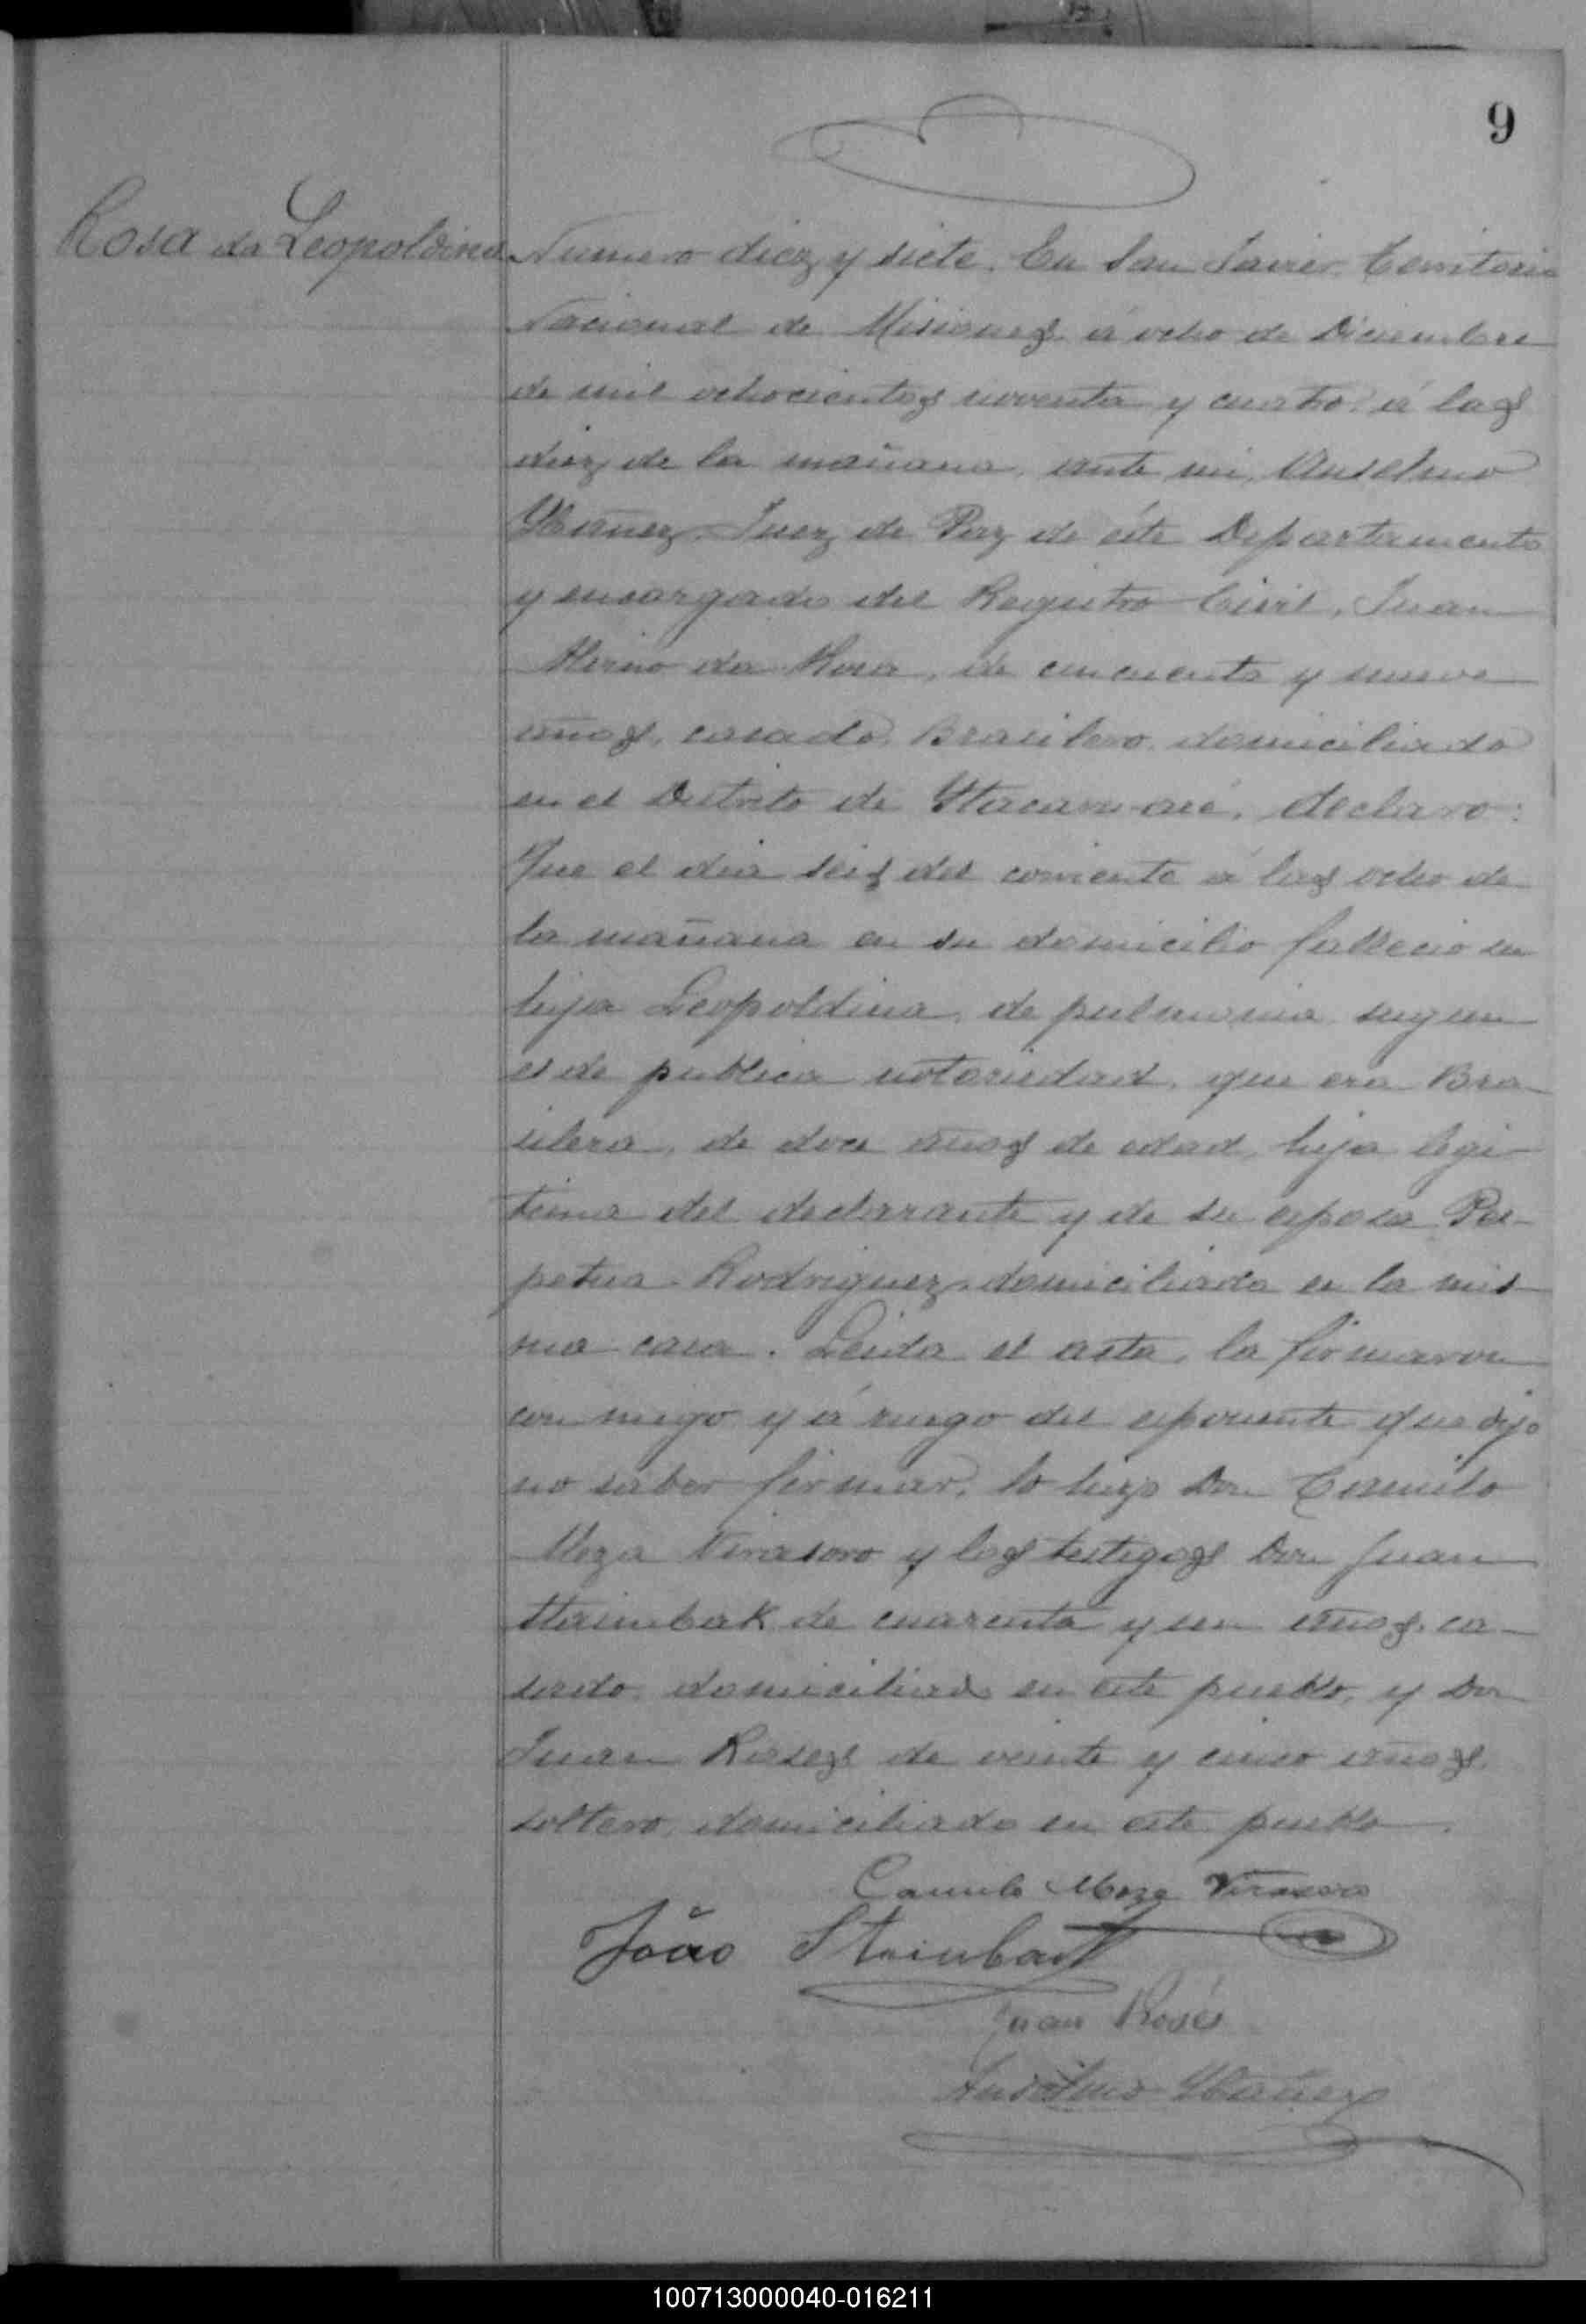 9
Rosa da Leopoldina
Numero diez y siete. En San Javier Territorio
Nacional de Misiones á ocho de Diciembre
de mil ochocientos noventa y cuatro á las
diez de la mañana, ante mi, Anselmo
Ybañez, Juez de Paz de éste Departamento
y encargado del Registro Civil, Juan
da Rosa, de cincuenta y nueve
años, casado, Brasilero, domiciliado
en el Distrito de declaro:
Que el dia seis del corriente á las ocho de
la mañana en su domicilio fallecio su
hija Leopoldina, de pulmonia segun
es de publica notoriedad, que era Bra-
silera, de doce años de edad, hija legi-
tima del declarante y de su esposa Per-
petua Rodriguez, domiciliada en la mis-
ma casa. Leida el acta, la firmaron
con migo y á ruego del esponente que dijo
no saber firmar, lo hizo Don Camilo
Meza Virasoro y los testigos Don Juan
Stainbak de cuarenta y un años, ca-
sado, domiciliado en este pueblo, y Don
Juan Roses de veinte y cinco años
soltero, domiciliado en este pueblo.
Camilo Meza Virasoro
João Steinbach
Juan Rosés
Anselmo Ybañez
100713000040-016211